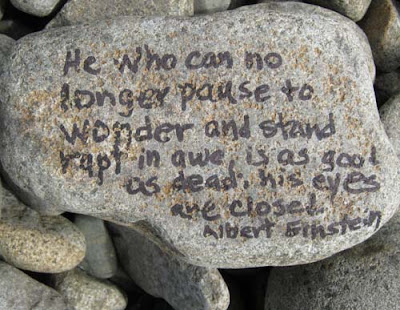 He who can no
longer pause to
wonder and stand
rapt in awe, is as good
as dead; his eyes
are closed.
Albert Einstein